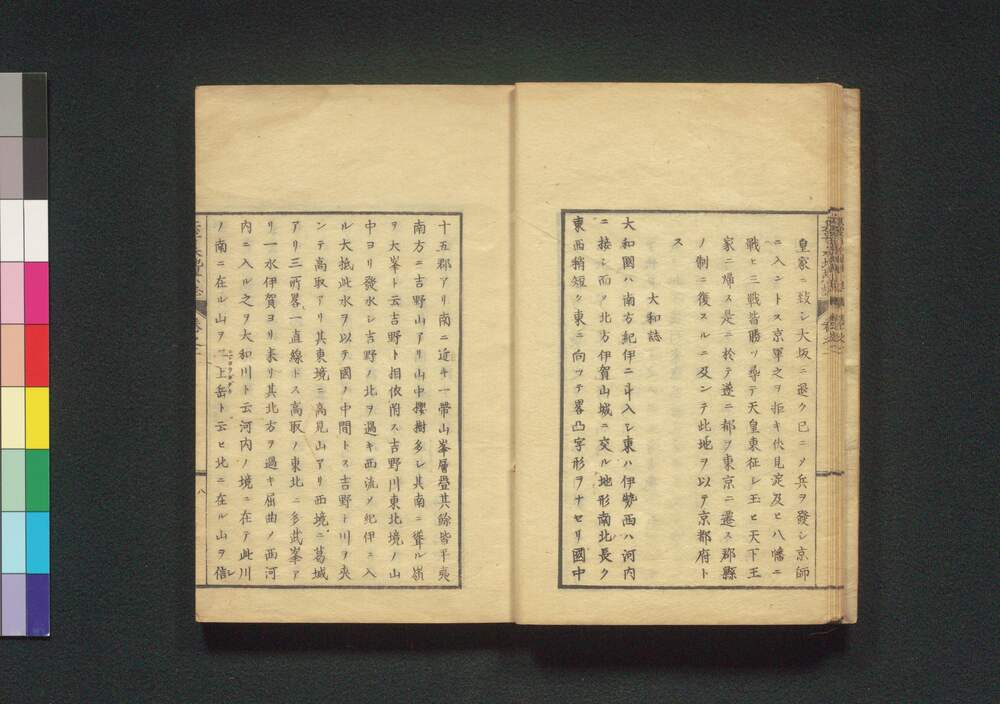 皇家ニ致シ大坂ニ退ク已ニメ兵ヲ發シ京師
ニ入ントス京軍之ヲ拒キ伏見淀及ヒ八幡ニ
戰ヒ三戰皆勝ツ尋テ天皇東征シ玉ヒ天下王
家ニ帰ス是ニ於テ遂ニ都ヲ東京ニ遷ス郡縣
ノ制ニ復スルニ及ンテ此地ヲ以テ京都府ト
ス
大和誌
大和國ハ南方紀伊ニ斗入シ東ハ伊勢西ハ河内
ニ接シ而ノ北方伊賀山城ニ交ル地形南北長ク
東西稍短ク東ニ向ツテ畧凸字形ヲナセリ國中
十五郡アリ南ニ近キ一帶山峯層疊其餘皆平爽
南方ニ吉野山アリ山中櫻樹多シ其南ニ聳ル嶺
ヲ大峯ト云吉野ト相依附ス吉野川東北境ノ山
中ヨリ發水シ吉野ノ北ヲ過キ西流メ紀伊ニ入
ル大抵此水ヲ以テ國ノ中間トス吉野ト川ヲ夾
ンテ高取アリ其東境ニ高見山アリ西境ニ葛城
アリ三所畧一直線トス高取ノ東北ニ多武峯ア
リ一水伊賀ヨリ来リ其北方ヲ過キ屈曲ノ西河
内ニ入ル之ヲ大和川ト云河内ノ境ニ在テ此川
ノ南ニ在ル山ヲ二上岳ト云ヒ北ニ在ル山ヲ信
八